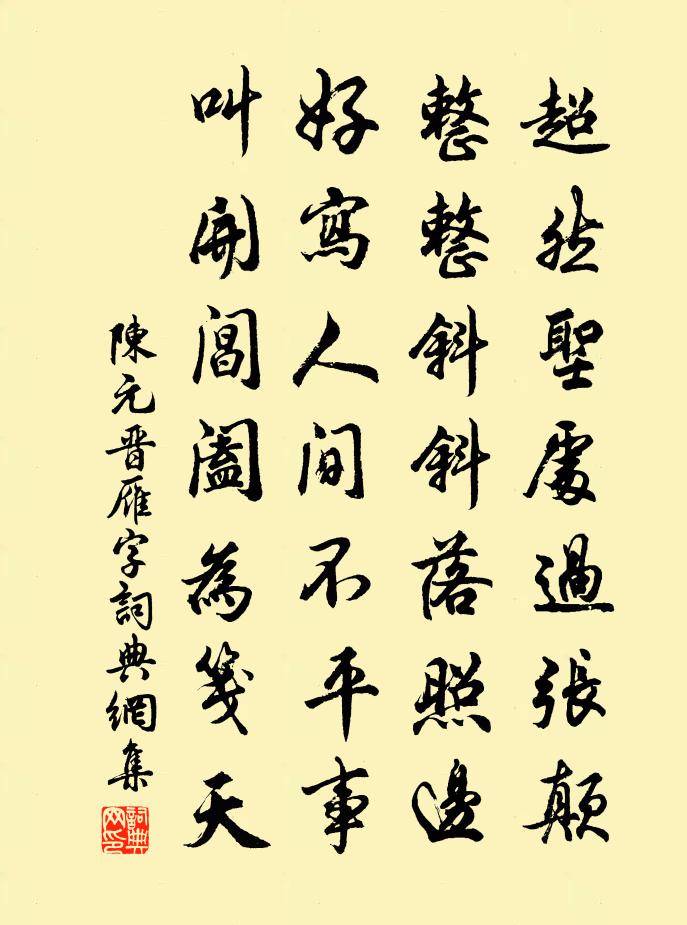 超然聖處過張顛
整整斜斜落照邊
好寫人間不平事
叫開閶闔為箋天
陳元晋雁字詞典網集
詞典网印